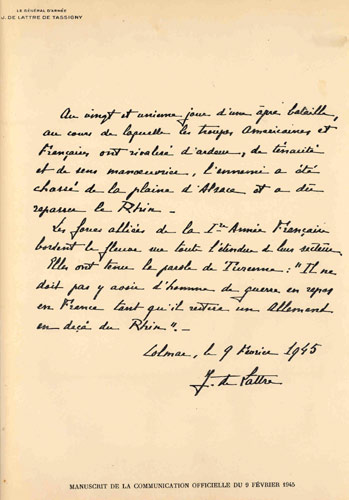 LE GÉNÉRAL D'ARMÉE
J. DE LATTRE DE TASSIGNY
Au vingt et unième jour d'une âpre bataille,
au cours de laquelle les troupes Américaines et
Françaises ont rivalisé d'ardeur, de ténacité
et de sens manœuvrier, l'ennemi a été
chassé de la plaine d'Alsace et a dû
repasser le Rhin –
Les forces alliées de la Ière Armée Française
bordent le fleuve sur toute l'étendue de leur secteur.
Elles ont tenu la parole de Turenne : "Il ne
doit pas y avoir d'homme de guerre en repos
en France tant qu'il restera un Allemand
en deçà du Rhin". –
Colmar, le 9 Février 1945
J. de Lattre
MANUSCRIT DE LA COMMUNICATION OFFICIELLE DU 9 FÉVRIER 1945